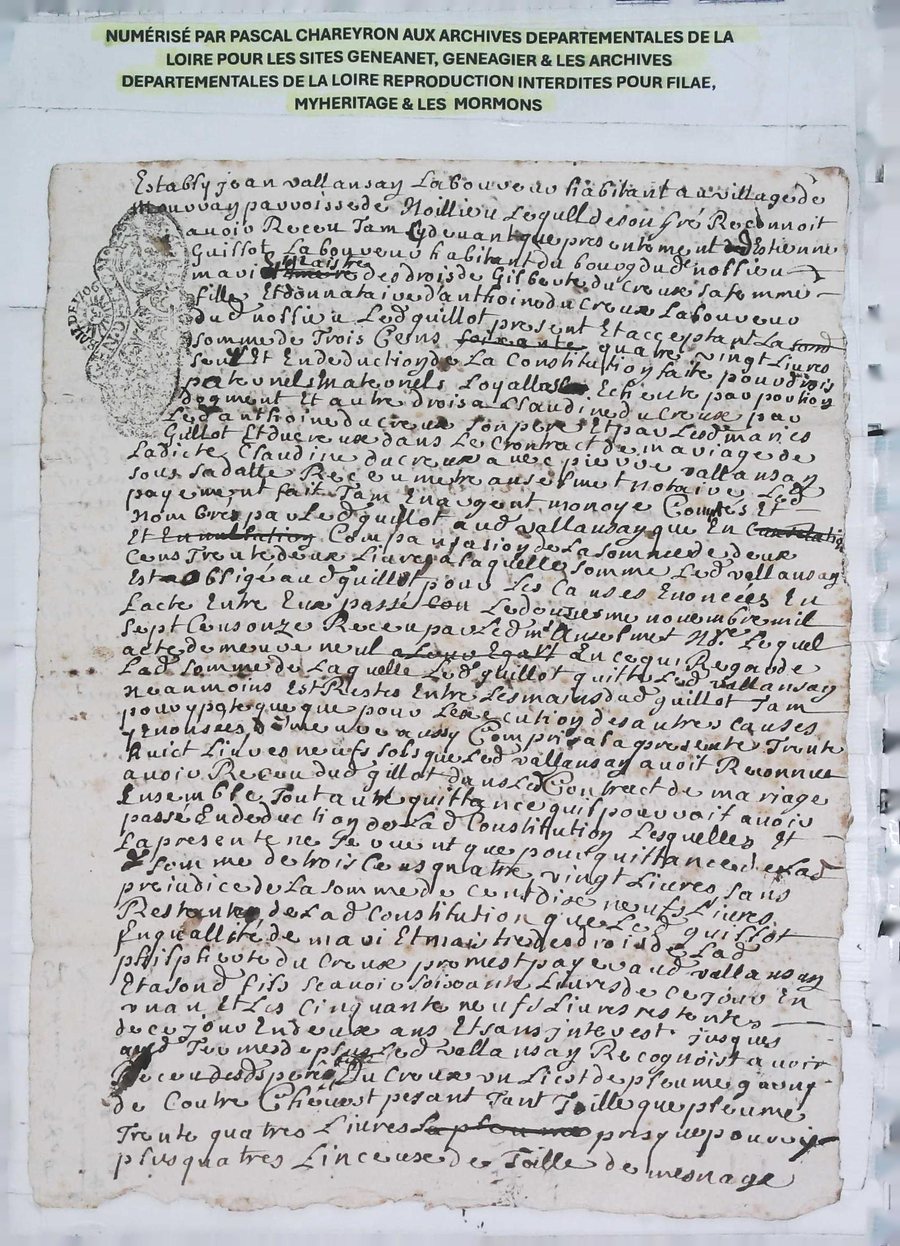 NUMÉRISÉ PAR PASCAL CHAREYRON AUX ARCHIVES DEPARTEMENTALES DE LA
LOIRE POUR LES SITES GENEANET, GENEAGIER & LES ARCHIVES
DEPARTEMENTALES DE LA LOIRE REPRODUCTION INTERDITES POUR FILAE,
MYHERITAGE & LES MORMONS
Estably jean vallansay Laboureur habitant au village de
parroisse de Noillieu Lequel de son gré Reconnoit
avoir Receu Tam Cy devant que presentement Estienne
Guillot Laboureur habitant du bourg dud nollieu
mari maistre des drois de Gilberte du Creux sa femme
fille Et donnataire danthoine du Creux Laboureur
dud nollieu Led guillot present Et acceptant La
somme de Trois Cens quatre vingt Livres
Et En deduction de La Constitution faite pour drois
paternels Maternels Echeute par portion
dogment Et autre drois a Claudine du Creux par
Led anthoine du Creux son pere Et par Lesd maries
Guillot Et du creux dans Le Contract de mariage de
Ladicte Claudine du creux avec pierre vallansay
sous sa datte Receu metre anselmet notaire Led
payement fait Tam En argent monoye Comptes Et
Nombres par Led guillot aud vallansay que En
Et Compansasion de La somme de deux
Cens Trente deux Livres a laquelle somme Led vallansay
Est obligé aud guillot pour Les Causes Enoncées En
Lacte Entre Eux passé Le douziesme novembre mil
sept Cens onze Receu par Led Mr Anselmet Nre Lequel
acte demeure nul En ce qui Regarde
Lad somme de Laquelle Led guillot quitte Led vallansay
neanmoins Est Restes Entre Les mains dud guillot Tam
pour ypoteque que pour Lexecution des autres Causes
y Enonsees demeure aussy Compris a la presente Trente
huict Livres neufs sols que Led vallansay avoit Reconnus
avoir Receu dud gillot dans Led Contract de mariage
Ensemble Tout autre quittance quil pourroit avoir
passe En deduction de Lad Constitution Lesquelles Et
La presente ne Servent que pour quittance de Lad
somme de trois Cens quatre vingt Livres sans
prejudice de La somme de Cent dise neufs Livres
Restante de Lad Constitution que Led guillot
En quallité de mari Et maistre des drois de Lad
du Creux promest payer aud vallansay
Et a sond fils scavoir soissante Livres de ce jour En
un an Et Les Cinquante neufs Livres restentes
de ce jour En deux ans Et sans jnterest jusques
aud Termes de plus Led vallansay Recognoist avoir
Receu desd du Creux un Lict de pleume garny
de Coutre Chevest pesant Tant Toille que pleume
Trente quatres Livres
plus quatres Linceuse de Toille de mesnage